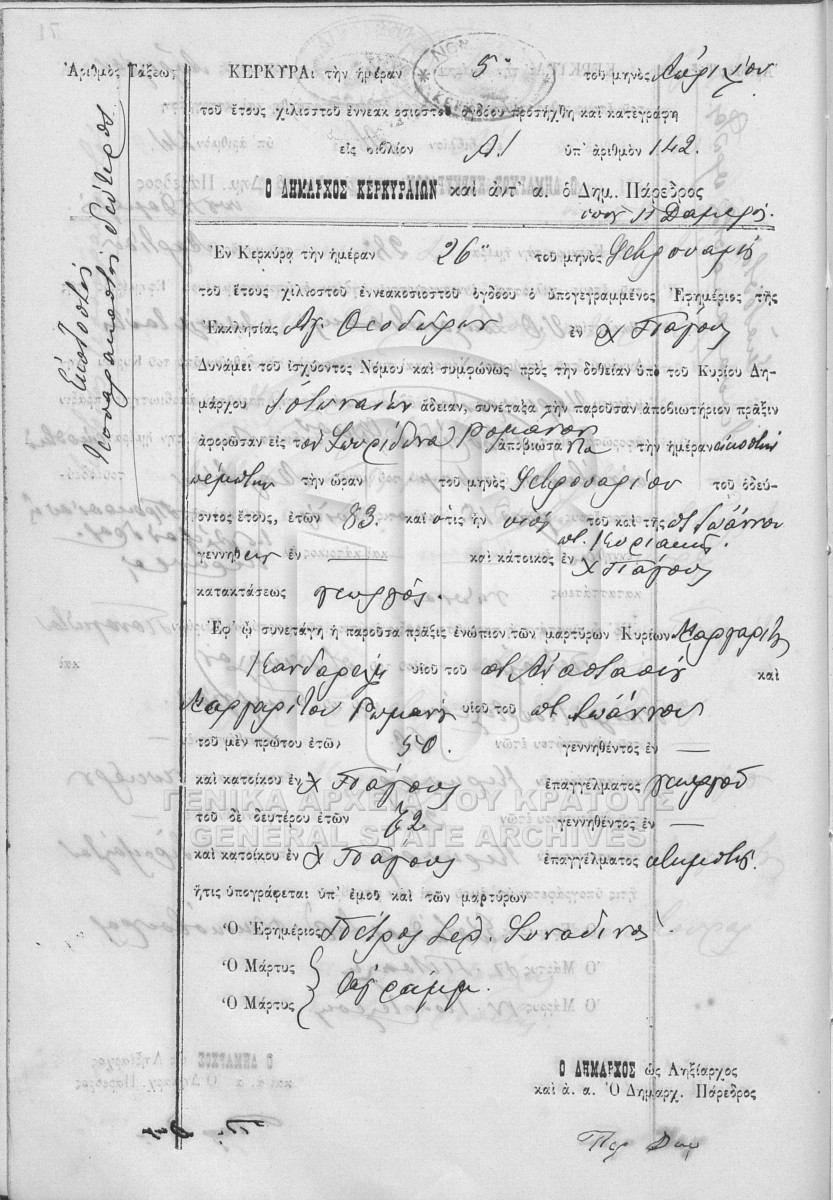 Ἀριθμὸς Τάξεως
Ἑκατοστὴ
τεσσαρακοστὴ δευτέρα
ΚΕΡΚΥΡΑι τὴν ἡμέραν 5ῃ τοῦ μηνὸς Ἀπριλίου
τοῦ ἔτους χιλιοστοῦ ἐννεακοσιοστοῦ ὀγδόου προσήχθη καὶ κατεγράφη
εἰς βιβλίον Α! ὑπ' ἀριθμὸν 142.
Ο ΔΗΜΑΡΧΟΣ ΚΕΡΚΥΡΑΙΩΝ καὶ ἀντ' α. ὁ Δημ. Πάρεδρος
Ἐν Κερκύρᾳ τὴν ἡμέραν 26ῃ τοῦ μηνὸς Φεβρουαρίου
τοῦ ἔτους χιλιοστοῦ ἐννεακοσιοστοῦ ὀγδόου ὁ ὑπογεγραμμένος Ἐφημέριος τῆς
Ἐκκλησίας Ἁγ. Θεοδώρων ἐν χ Πάγους
Δυνάμει τοῦ ἰσχύοντος Νόμου καὶ συμφώνως πρὸς τὴν δοθεῖσαν ὑπὸ τοῦ Κυρίου Δη-
μάρχου ἄδειαν, συνέταξα τὴν παροῦσαν ἀποβιωτήριον πρᾶξιν
ἀφορῶσαν εἰς τὸν Σπυρίδωνα Ρομάνον ἀποβιώσαντα τὴν ἡμέραν εἰκοστὴν
πέμπτην τὴν ὥραν τοῦ μηνὸς Φεβρουαρίου τοῦ ὁδεύ-
οντος ἔτους, ἐτῶν 83. καὶ ὅτις ἦν υἱὸς τοῦ καὶ τῆς ποτ Ἰωάννου
ποτ. Κυριακῆς.
γεννηθεὶς ἐν — καὶ κάτοικος ἐν χ Πάγους
κατακτάσεως γεωργός.
Ἐφ' ᾧ συνετάγη ἡ παροῦσα πρᾶξις ἐνώπιον τῶν μαρτύρων Κυρίων Μαργαρίτη
υἱοῦ τοῦ ποτ Ἀναστασίου καὶ
Μαργαρίτου Ρωμανοῦ υἱοῦ τοῦ ποτ Ἰωάννου
τοῦ μὲν πρώτου ἐτῶν 50. γεννηθέντος ἐν —
καὶ κατοίκου ἐν χ Πάγους ἐπαγγέλματος γεωργοῦ
τοῦ δὲ δευτέρου ἐτῶν 62 γεννηθέντος ἐν —
καὶ κατοίκου ἐν χ Πάγους ἐπαγγέλματος κτηματίας.
ἥτις ὑπογράφεται ὑπ' ἐμοῦ καὶ τῶν μαρτύρων
Ὁ Ἐφημέριος Πέτρος Συναδινός
Ὁ Μάρτυς
Ἀγράμμ.
Ὁ Μάρτυς
Ο ΔΗΜΑΡΧΟΣ ὡς Ληξίαρχος
καὶ ἀ. α. Ὁ Δημαρχ. Πάρεδρος
ΓΕΝΙΚΑ ΑΡΧΕΙΑ ΤΟΥ ΚΡΑΤΟΥΣ
GENERAL STATE ARCHIVES